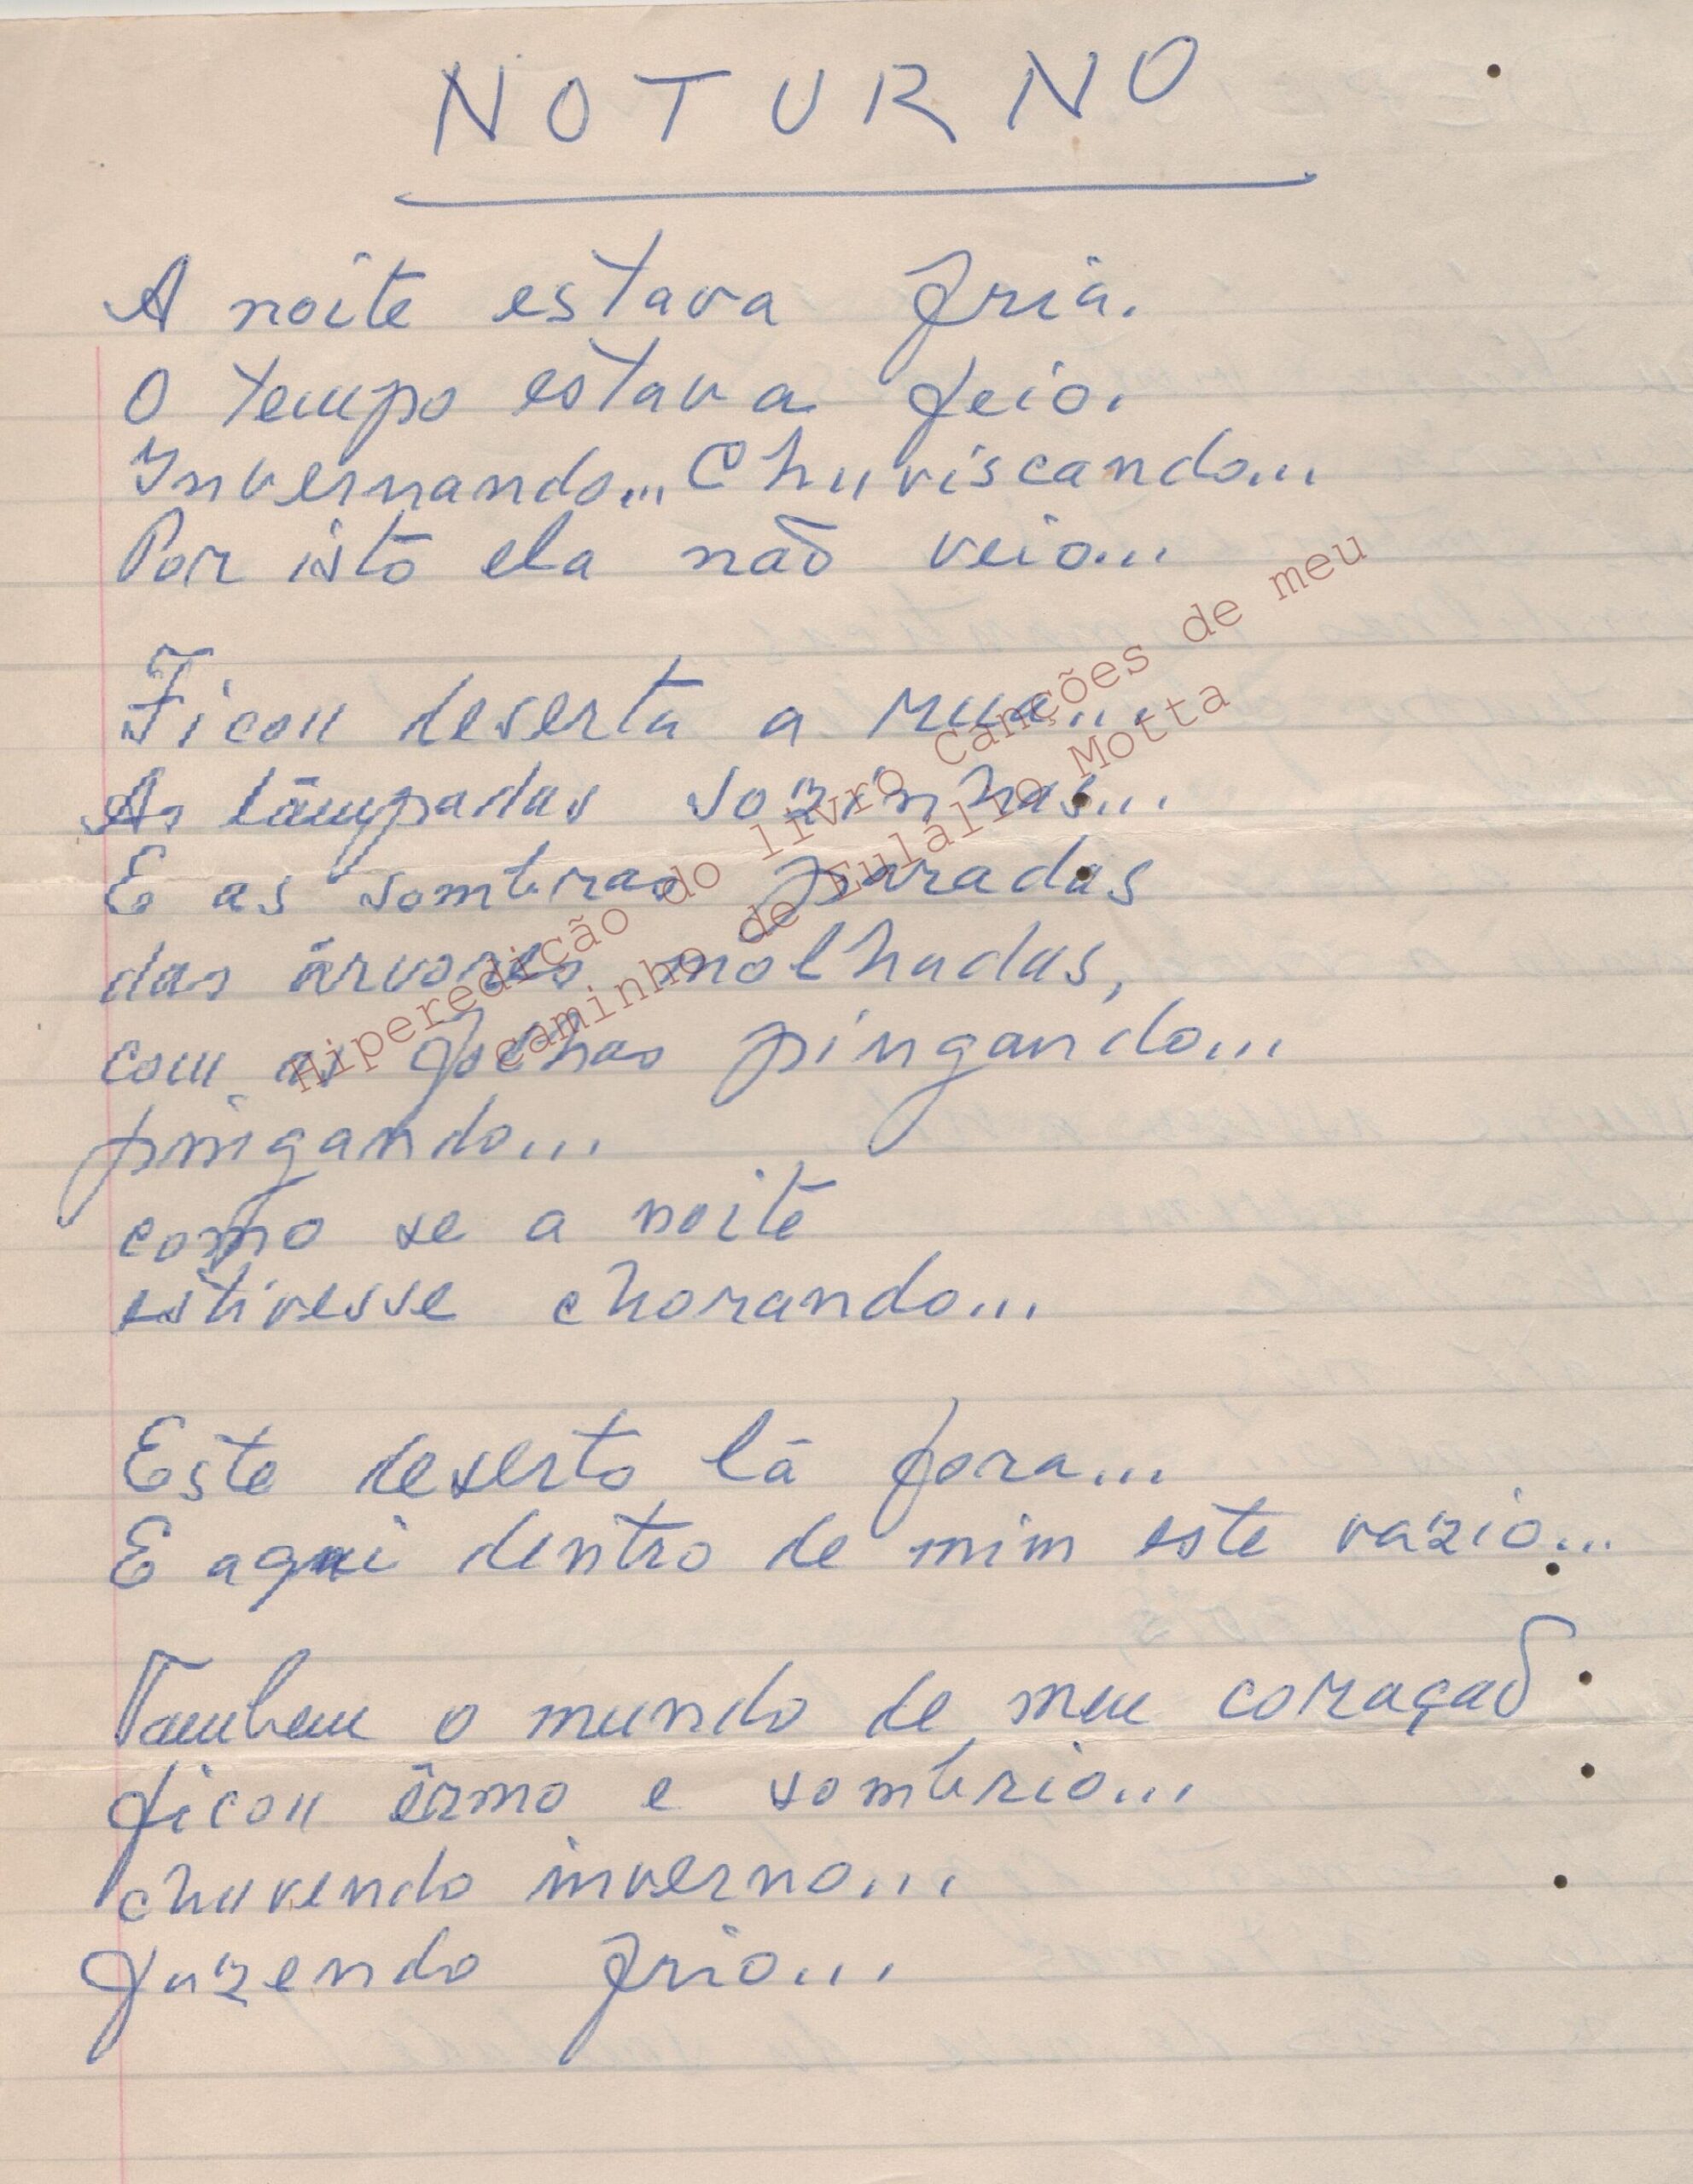 NOTURNO
A noite estava fria.
O tempo estava feio.
Invernando... Chuviscando...
Por isto ela não veio...
Ficou deserta a rua...
As lâmpadas sozinhas...
E as sombras paradas
das árvores molhadas,
com as folhas pingando...
pingando...
como se a noite
estivesse chorando...
Este deserto lá fora...
E aqui dentro de mim este vazio...
Tambem o mundo de meu coração
ficou êrmo e sombrio...
chuvendo inverno...
fazendo frio...
Hiperedição do livro Canções de meu
caminho de Eulálio Motta